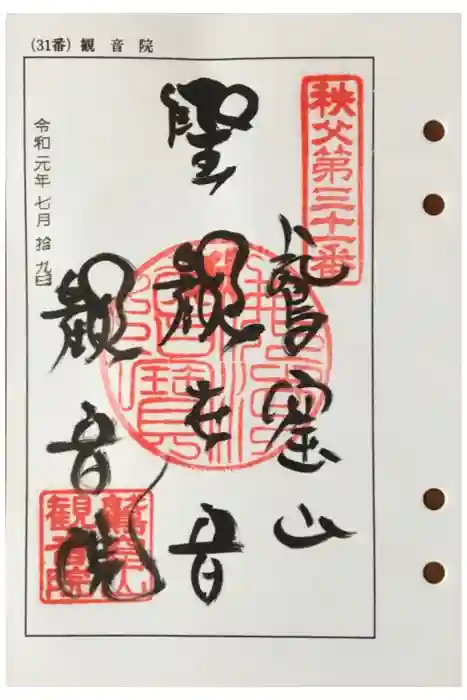 (31番) 観音院
秩父第三十一番
鷲窟山
聖観世音
観音院
令和元年七月拾九日
鷲窟山
観音院